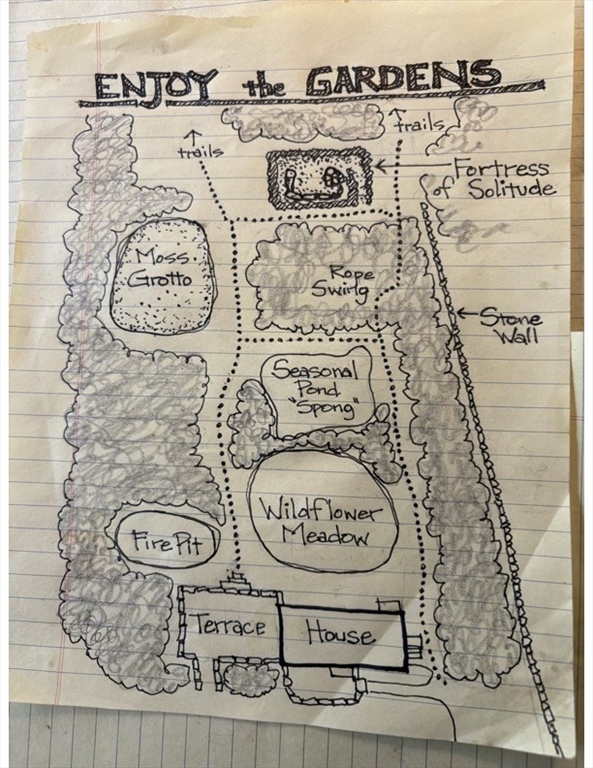 ENJOY the GARDENS
trails
trails
Fortress
of Solitude
Moss
Grotto
Rope
Swing
Stone
Wall
Seasonal
Pond
"Spong"
Wildflower
Meadow
Fire Pit
Terrace
House